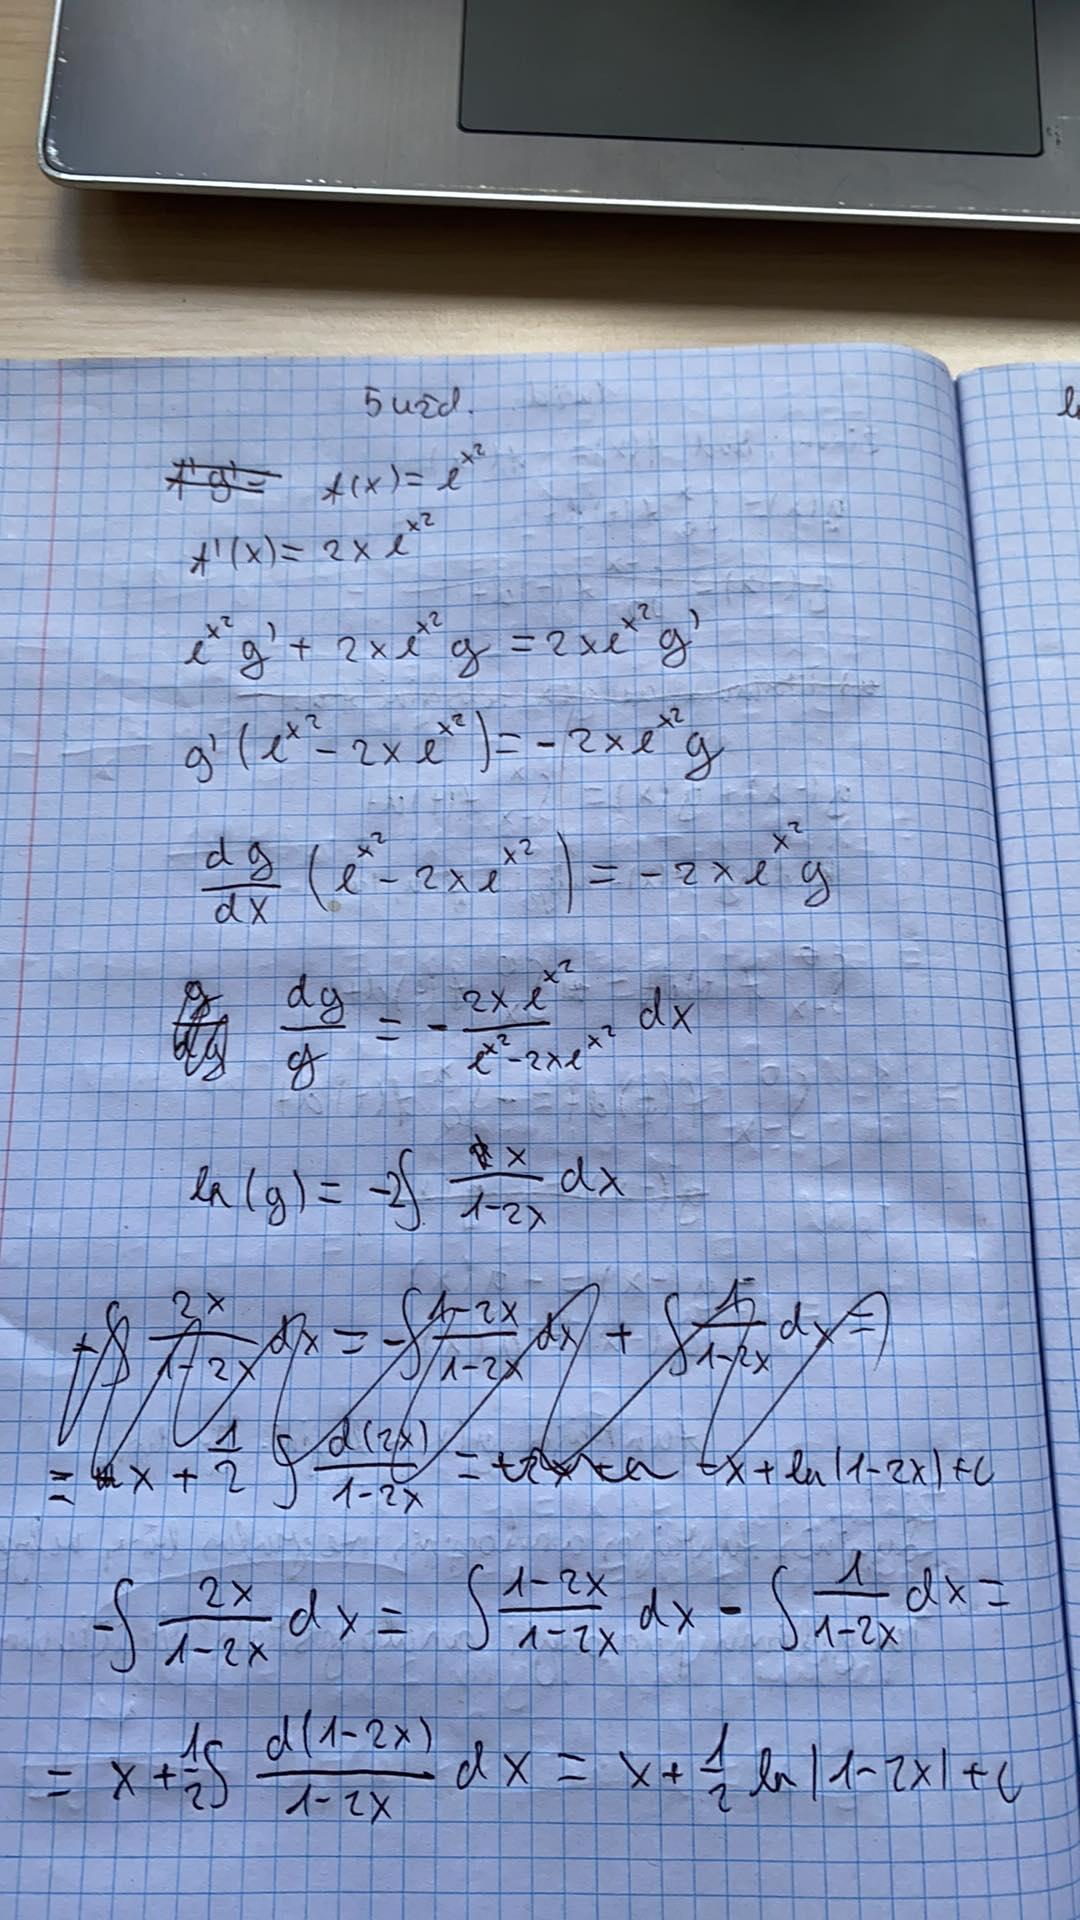 5 užd.
f'g'= f(x) = e^{x^2}
f'(x) = 2x e^{x^2}
e^{x^2} g' + 2x e^{x^2} g = 2x e^{x^2} g'
g' (e^{x^2} - 2x e^{x^2}) = - 2x e^{x^2} g
dg/dx (e^{x^2} - 2x e^{x^2}) = - 2x e^{x^2} g
g/dg dg/g = - 2x e^{x^2}/(e^{x^2} - 2x e^{x^2}) dx
ln(g) = -2∫ x/(1-2x) dx
-∫ 2x/(1-2x) dx = -∫ (1-2x)/(1-2x) dx + ∫ 1/(1-2x) dx =
= x + 1/2 ∫ d(2x)/(1-2x) = -x + ln|1-2x| + c
-∫ 2x/(1-2x) dx = ∫ (1-2x)/(1-2x) dx - ∫ 1/(1-2x) dx =
= x + 1/2 ∫ d(1-2x)/(1-2x) dx = x + 1/2 ln|1-2x| + c